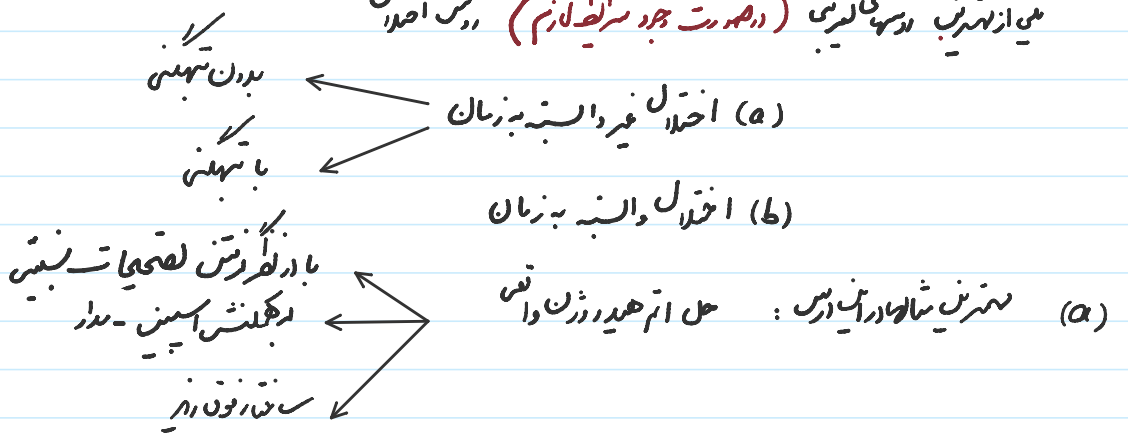 یکی از مهمترین روشهای تقریبی (در صورت وجود شرایط لازم) روش اختلال
(a) اختلال غیر وابسته به زمان
بدون تبهگنی
با تبهگنی
(b) اختلال وابسته به زمان
(a) مهمترین مثالها در این درس : حل اتم هیدروژن واقعی
با در نظر گرفتن تصحیحات نسبیتی
برهمکنش اسپین - مدار
ساختار فوق ریز